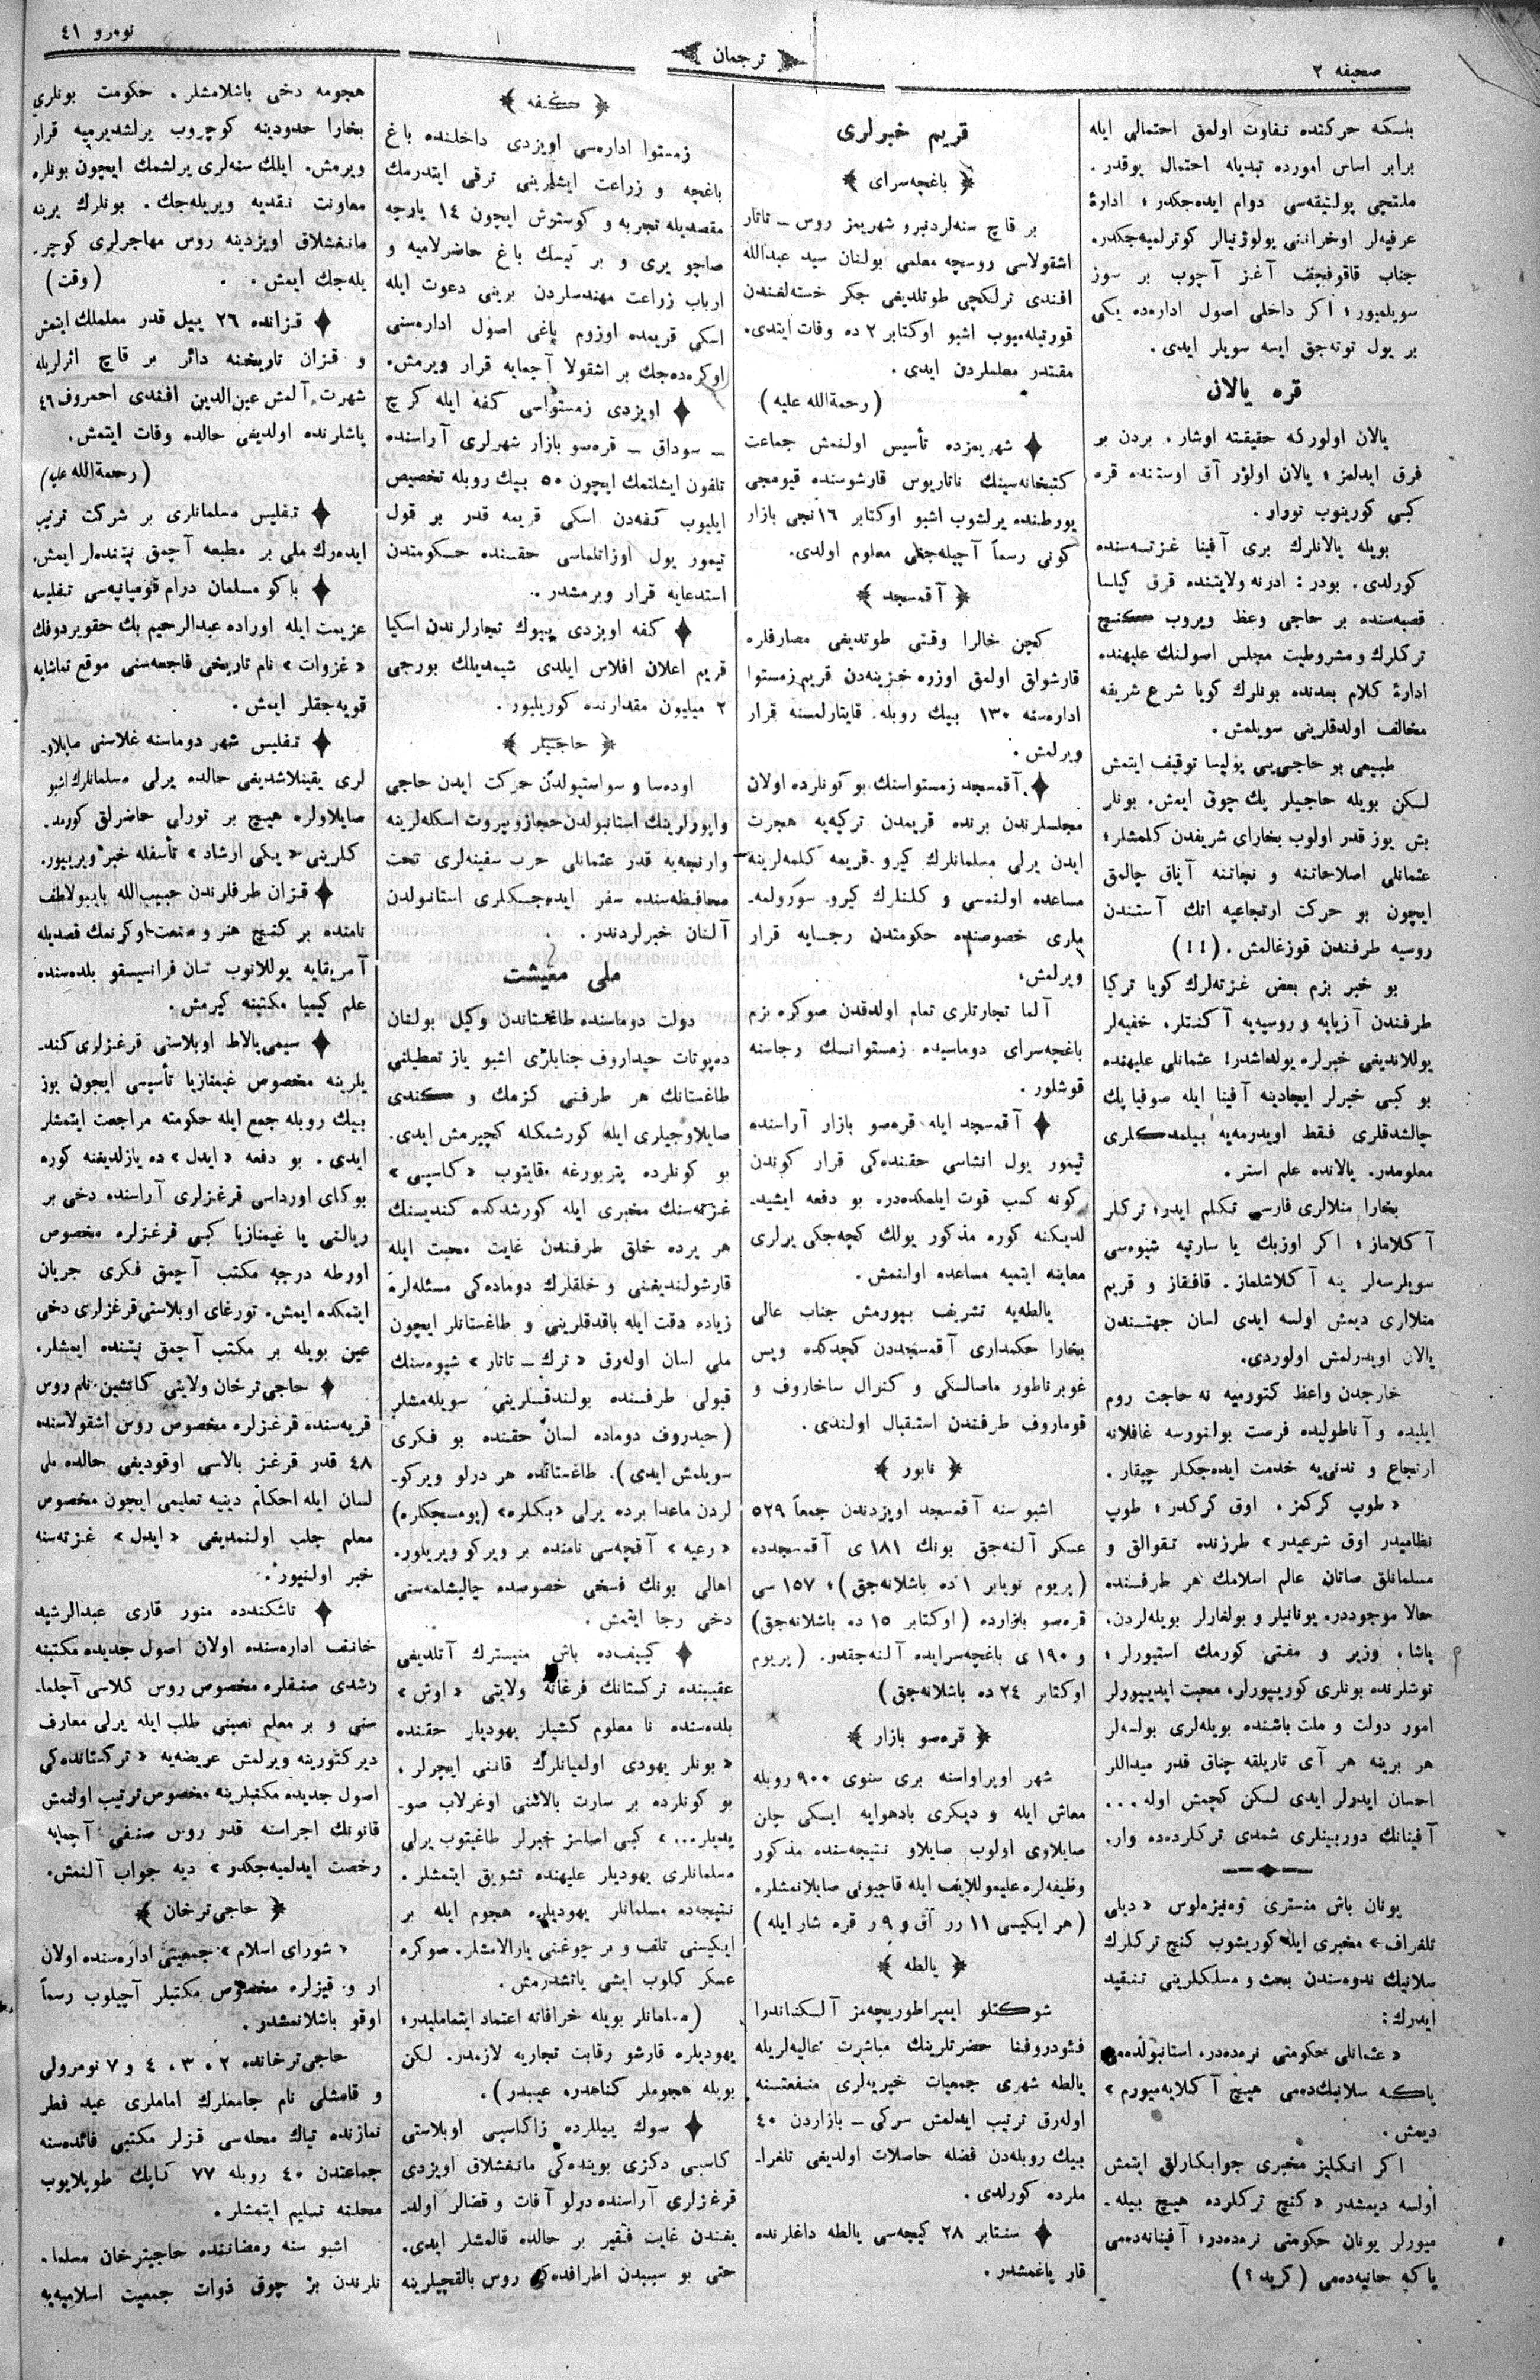 صحيفه ٢
ترجمان
نومرو ٤١
بشكه حركتده تفاوت اولمق احتمالى ايله
برابر اساس امورده تبديله احتمال يوقدر.
ملتچى پولتيقه‌سى دوام ايده‌جكدر؛ ادارۀ
عرفيه‌لر اوخراننى پولوژنيالر كوترلميه‌جكدر.
جناب قاقوفچف آغز آچوب بر سوز
سويلميور؛ اكر داخلى اصول اداره‌ده يكى
بر يول توته‌جق ايسه سويلر ايدى.
قره يالان
يالان اولورکه حقيقته اوشار، بردن بر
فرق ايدلمز؛ يالان اولور آق اوستنده قره
كبى كورينوب تورار.
بويله يالانلرك برى آفينا غزته‌سنده
كورلدى. بودر: ادرنه ولايتنده قرق كليسا
قصبه‌سنده بر حاجى وعظ ويروب كنج
تركلرك و مشروطيت مجلس اصولنك عليهنده
ادارۀ كلام بعدنده بونلرك كويا شرع شريفه
مخالف اولدقلرينى سويلمش.
طبيعى بو حاجى‌يى پوليسا توقيف ايتمش
لكن بويله حاجيلر پك چوق ايمش. بونلر
بش يوز قدر اولوب بخاراى شريفدن كلمشلر؛
عثمانلى اصلاحاتنه و نجاتنه آياق چالمق
ايچون بو حركت ارتجاعيه اتك آستندن
روسيه طرفندن قوزغالمش. (!!)
بو خبر بزم بعض غزته‌لرك كويا تركيا
طرفندن آزيايه و روسيه‌يه آكنتلر، خفيه‌لر
يوللانديغى خبرلره يولداشدر! عثمانلى عليهنده
بو كبى خبرلر ايجادينه آفينا ايله صوفيا پك
چالشدقلرى فقط اويدرمه‌يه بيلمدكلرى
معلومدر. يالانده علم استر.
بخارا منلالرى فارسى تكلم ايدر؛ تركلر
آكلاماز؛ اكر اوزبك يا سارتيه شيوه‌سى
سويلرسه‌لر ينه آكلاشلماز. قافقاز و قريم
منلالرى ديمش اولسه ايدى لسان جهتندن
يالان اويدرلمش اولوردى.
خارجدن واعظ كتورميه نه حاجت روم
ايليده و آناطوليده فرصت بولنورسه غافلانه
ارتجاع و تدنى‌يه خدمت ايده‌جكلر چيقار.
« طوپ كركمز، اوق كركدر؛ طوپ
نظاميدر اوق شرعيدر» طرزنده تقوالق و
مسلمانلق صاتان عالم اسلامك هر طرفنده
حالا موجوددر. يونانيلر و بولغارلر بويله‌لردن،
پاشا، وزير و مفتى كورمك استيورلر؛
توشلرنده بونلرى كوريپورلر، محبت ايديپورلر
امور دولت و ملت باشنده بويله‌لرى بولسه‌لر
هر برينه هر آى تاريلقه چناق قدر ميداللر
احسان ايدرلر ايدى لكن كچمش اوله...
آفينانك دوربينلرى شمدى تركلرده‌ده وار.
يونان باش منسترى ونيزه‌لوس « ديلى
تلغراف » مخبرى ايله كوريشوب كنج تركلرك
سلانيك ندوه‌سندن بحث و مسلكلرينى تنقيد
ايدرك:
« عثمانلى حكومتى نره‌ده‌در، استانبولده‌مى
ياكه سلانيك‌ده‌مى هيچ آكلايه‌ميورم »
ديمش.
اكر انكليز مخبرى جوابكارلق ايتمش
اولسه ديمشدر « كنج تركلرده هيچ بيله-
ميورلر يونان حكومتى نره‌ده‌در؛ آفينانه‌ده‌مى
ياكه حانيه‌ده‌مى (كريد؟)
قريم خبرلرى
﴿ باغچه‌سراى ﴾
بر قاچ سنه‌لردنبرو شهريمز روس ـ تاتار
اشقولاسى روسچه معلمى بولنان سيد عبدالله
افندى ترلكچى طوتلديغى جكر خسته‌لغندن
قورتيله‌ميوب اشبو اوكتابر ٢ ده وفات ايتدى.
مقتدر معلملردن ايدى.
(رحمة الله عليه)
شهريمزده تأسيس اولنمش جماعت
كتبخانه‌سينك ناتاريوس قارشوسنده قيومجى
يورطنده يرلشوب اشبو اوكتابر ١٦نجى بازار
كونى رسماً آچيله‌جغى معلوم اولدى.
﴿ آقمسجد ﴾
كچن خالرا وقتى طوتديغى مصارفلره
قارشولق اولمق اوزره خزينه‌دن قريم زمستوا
اداره‌سنه ١٣٠ بيك روبله قايتارلمسنه قرار
ويرلمش.
آقمسجد زمستواسنك بو كونلرده اولان
مجلسلرندن برنده قريمدن تركيه‌يه هجرت
ايدن يرلى مسلمانلرك كيرو قريمه كلمه‌لرينه
مساعده اولنمسى و كلنلرك كيرو سورولمه-
ملرى خصوصنده حكومتدن رجايه قرار
ويرلمش.
آلما تجارتلرى تمام اولدقدن صوكره بزم
باغچه‌سراى دوماسيده زمستوانك رجاسنه
قوشلور.
آقمسجد ايله قره‌صو بازار آراسنده
تيمور يول انشاسى حقنده‌كى قرار كوندن
كونه كسب قوت ايلمكده‌در. بو دفعه ايشيد-
لديكنه كوره مذكور يولك كچه‌جكى يرلرى
معاينه ايتميه مساعده اولنمش.
يالطه‌يه تشريف بيورمش جناب عالى
بخارا حكمدارى آقمسجددن كچدكده ويس
غوبرناطور ماصالسكى و كنرال ساخاروف و
قوماروف طرفندن استقبال اولندى.
﴿ نابور ﴾
اشبو سنه آقمسجد اويزدندن جمعاً ٥٢٩
عسكر آلنه‌جق بونك ١٨١ ى آقمسجدده
(پريوم نويابر ١ ده باشلانه‌جق)؛ ١٥٧ سى
قره‌صو بازارده (اوكتابر ١٥ ده باشلانه‌جق)
و ١٩٠ ى باغچه‌سرايده آلنه‌جقدر. (پريوم
اوكتابر ٢٤ ده باشلانه‌جق)
﴿ قره‌صو بازار ﴾
شهر اوپراواسنه برى سنوى ٩٠٠ روبله
معاش ايله و ديكرى بادهوايه ايكى چلن
صايلاوى اولوب صايلاو نتيجه‌سنده مذكور
وظيفه‌لره عليموللايف ايله قاچيونى صايلانمشلر.
(هر ايكيسى ١١ رر آق و ٩ ر قره شار ايله)
﴿ يالطه ﴾
شوكتلو ايمپراطوريچه‌مز آلكساندرا
فئودروفنا حضرتلرينك مباشرت عاليه‌لريله
يالطه شهرى جمعيات خيريه‌لرى منفعتنه
اوله‌رق ترتيب ايدلمش سركى ـ بازاردن ٤٠
بيك روبله‌دن فضله حاصلات اولديغى تلغرا-
ملرده كورلدى.
سنتابر ٢٨ كيچه‌سى يالطه داغلرنده
قار ياغمشدر.
﴿ كفه ﴾
زمستوا اداره‌سى اويزدى داخلنده باغ
باغچه و زراعت ايشلرينى ترقى ايتدرمك
مقصديله تجربه و كوستوش ايچون ١٤ پارچه
صاچو يرى و بر تيسك باغ حاضرلاميه و
ارباب زراعت مهندسلردن برينى دعوت ايله
اسكى قريمده اوزوم باغى اصول اداره‌سنى
اوكره‌ده‌جك بر اشقولا آچمايه قرار ويرمش.
اويزدى زمستواسى كفه ايله كرچ
ـ سوداق ـ قره‌صو بازار شهرلرى آراسنده
تلفون ايشلتمك ايچون ٥٠ بيك روبله تخصيص
ايليوب كفه‌دن اسكى قريمه قدر بر قول
تيمور يول اوزاتلماسى حقنده حكومتدن
استدعايه قرار ويرمشدر.
كفه اويزدى بيوك تجارلرندن اسكيا
قريم اعلان افلاس ايلدى شيمديلك بورجى
٢ ميليون مقدارنده كوريليور.
﴿ حاجيلر ﴾
اوده‌سا و سواستپولدن حركت ايدن حاجى
واپورلرينك استانبولدن حجاز و بيروت اسكله‌لرينه
وارنجه‌يه قدر عثمانلى حرب سفينه‌لرى تحت
محافظه‌سنده سفر ايده‌جكلرى استانبولدن
آلنان خبرلردندر.
ملى معيشت
دولت دوماسنده طاغستاندن وكيل بولنان
ده‌پوتات حيداروف جنابلرى اشبو ياز تعطيلنى
طاغستانك هر طرفنى كزمك و كندى
صايلاوجيلرى ايله كورشمكله كچيرمش ايدى.
بو كونلرده پتربورغه قايتوب « كاسپى »
غزته‌سنك مخبرى ايله كورشدكده كنديسنك
هر يرده خلق طرفندن غايت محبت ايله
قارشولنديغنى و خلقلرك دوماده‌كى مسئله‌لره
زياده دقت ايله باقدقلرينى و طاغستانلر ايچون
ملى لسان اوله‌رق « ترك ـ تاتار » شيوه‌سنك
قبولى طرفنده بولندقلرينى سويله‌مشلر
(حيدروف دوماده لسان حقنده بو فكرى
سويلمش ايدى). طاغستانده هر درلو ويركو-
لردن ماعدا برده يرلى « بكلره » (پومسچكلره)
« رعيه » آقچه‌سى نامنده بر ويركو ويريلور.
اهالى بونك فسخى خصوصده چاليشلمه‌سنى
دخى رجا ايتمش.
كييفده باش منيسترك آتلديغى
عقيبنده تركستانك فرغانه ولايتى « اوش »
بلده‌سنده نا معلوم كشيلر يهوديلر حقنده
« بونلر يهودى اولميانلرك قاننى ايچرلر،
بو كونلرده بر سارت بالاسنى اوغرلاب صو-
يديلر... » كبى اصلسز خبرلر طاغيتوب يرلى
مسلمانلرى يهوديلر عليهنده تشويق ايتمشلر.
نتيجه‌ده مسلمانلر يهوديلره هجوم ايله بر
ايكيسنى تلف و بر چوغنى يارالامشلر. صوكره
عسكر كيلوب ايشى ياتشدرمش.
(مسلمانلر بويله خرافاته اعتماد ايتمامليدر؛
يهوديلره قارشو رقابت تجاريه لازمدر. لكن
بويله هجوملر كناهدر، عيبدر).
صوك ييللرده زاكاسپى اوبلاستى
كاسپى دكزى بوينده‌كى مانغشلاق اويزدى
قرغزلرى آراسنده درلو آفات و قضالر اولد-
يغندن غايت فقير بر حالده قالمشلر ايدى.
حتى بو سببدن اطرافده‌كى روس بالقچيلرينه
هجومه دخى باشلامشلر. حكومت بونلرى
بخارا حدودينه كوچروب يرلشديرميه قرار
ويرمش. ايلك سنه‌لرى يرلشمك ايچون بونلره
معاونت نقديه ويريله‌جك. بونلرك يرينه
مانغشلاق اويزدينه روس مهاجرلرى كوچر-
يله‌جك ايمش. (وقت)
قزانده ٢٦ ييل قدر معلملك ايتمش
و قزان تاريخنه دائر بر قاچ اثرلريله
شهرت آلمش عين‌الدين افندى احمروف ٤٦
ياشلرنده اولديغى حالده وفات ايتمش.
(رحمة الله عليه)
تفليس مسلمانلرى بر شركت ترتيب
ايده‌رك ملى بر مطبعه آچمق نيتنده‌لر ايمش.
باكو مسلمان درام قومپانيه‌سى تفليسه
عزيمت ايله اوراده عبدالرحيم بك حقويردوفك
« غزوات » نام تاريخى فاجعه‌سنى موقع تماشايه
قويه‌جقلر ايمش.
تفليس شهر دوماسنه غلاسنى صايلاو-
لرى يقينلاشديغى حالده يرلى مسلمانلرك اشبو
صايلاولره هيچ بر تورلى حاضرلق كورمد-
كلرينى « يكى ارشاد » تأسفله خبر ويريپور.
قزان طرفلرندن حبيب‌الله بايبولاطف
نامنده بر كنج هنر و صنعت اوكرنمك قصديله
آمريقايه يوللانوب سان فرانسيسقو بلده‌سنده
علم كيميا مكتبنه كيرمش.
سيمى‌پالاط اوبلاستى قرغزلرى كند-
يلرينه مخصوص غيمنازيا تأسيسى ايچون يوز
بيك روبله جمع ايله حكومته مراجعت ايتمشلر
ايدى. بو دفعه « ايدل » ده يازلديغنه كوره
بوكاى اورداسى قرغزلرى آراسنده دخى بر
ريالنى يا غيمنازيا كبى قرغزلره مخصوص
اورطه درجه مكتب آچمق فكرى جريان
ايتمكده ايمش. تورغاى اوبلاستى قرغزلرى دخى
عين بويله بر مكتب آچمق نيتنده ايمشلر.
حاجى‌ترخان ولايتى نام روس
قريه‌سنده قرغزلره مخصوص روس اشقولاسنده
٤٨ قدر قرغز بالاسى اوقوديغى حالده ملى
لسان ايله احكام دينيه تعليمى ايچون مخصوص
معلم جلب اولنمديغى « ايدل » غزته‌سنه
خبر اولنيور.
تاشكندده منور قارى عبدالرشيد
خانف اداره‌سنده اولان اصول جديده مكتبنه
رشدى صنفلره مخصوص روس كلاسى آچلما-
سنى و بر معلم نصبينى طلب ايله يرلى معارف
ديركتورينه ويرلمش عريضه‌يه « تركستانده‌كى
اصول جديده مكتبلرينه مخصوص ترتيب اولنمش
قانونك اجراسنه قدر روس صنفى آچمايه
رخصت ايدلميه‌جكدر » ديه جواب آلنمش.
﴿ حاجى‌ترخان ﴾
« شوراى اسلام » جمعيتى اداره‌سنده اولان
ار و قيزلره مخصوص مكتبلر آچيلوب رسماً
اوقو باشلانمشدر.
حاجى‌ترخانده ٢، ٣، ٤ و ٧ نومرولى
و قامشلى نام جامعلرك اماملرى عيد فطر
نمازنده تياك محله‌سى قزلر مكتبى فائده‌سنه
جماعتدن ٤٠ روبله ٧٧ كاپك طوپلايوب
محلنه تسليم ايتمشلر.
اشبو سنه رمضانده حاجيترخان مسلما-
نلرندن بر چوق ذوات جمعيت اسلاميه‌يه